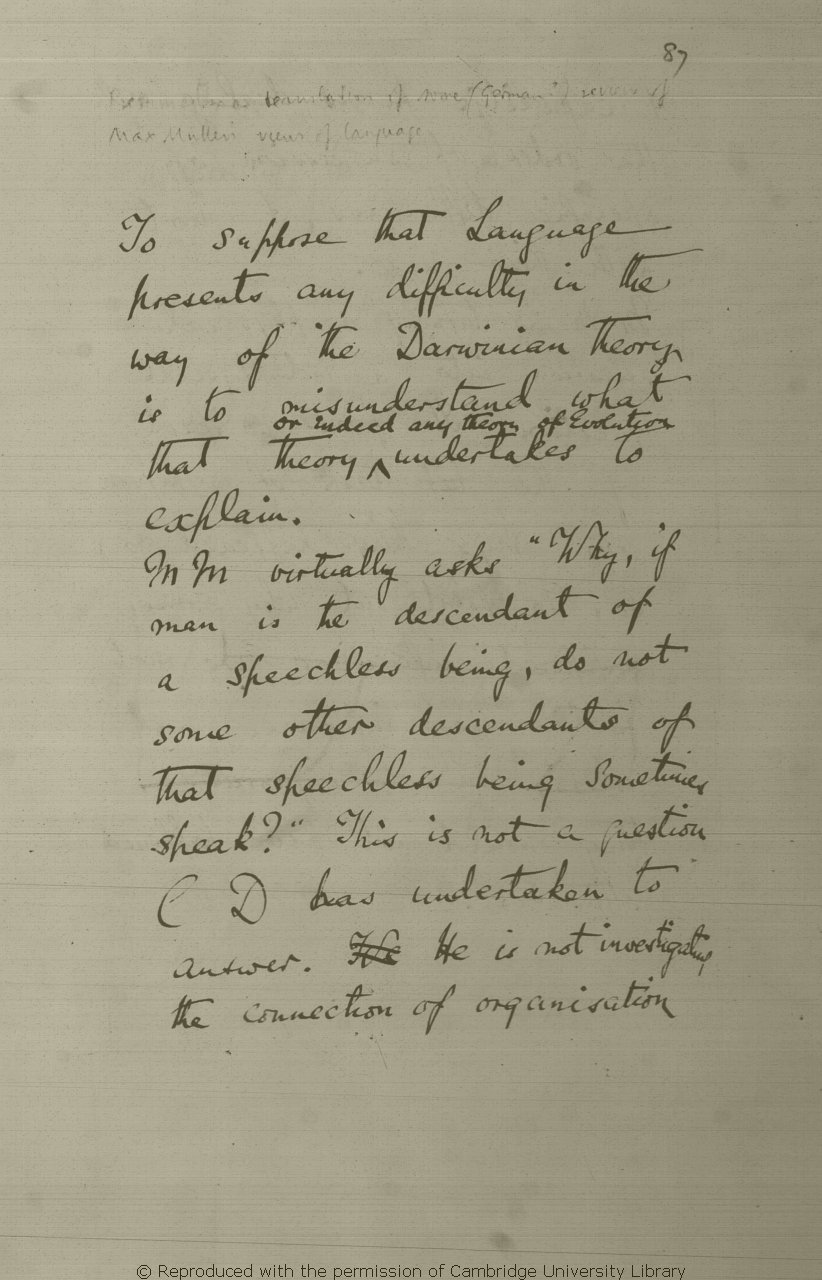 87
translation of some (German?) review of
Max Müller's views of language
To suppose that Language
presents any difficulty in the
way of the Darwinian theory
is to misunderstand what
or indeed any theory of Evolution
that theory ^ undertakes to
explain.
M M virtually asks "Why, if
man is the descendant of
a speechless being, do not
some other descendants of
that speechless being sometimes
speak?" This is not a question
C D has undertaken to
answer. He He is not investigating
the connection of organisation
© Reproduced with the permission of Cambridge University Library